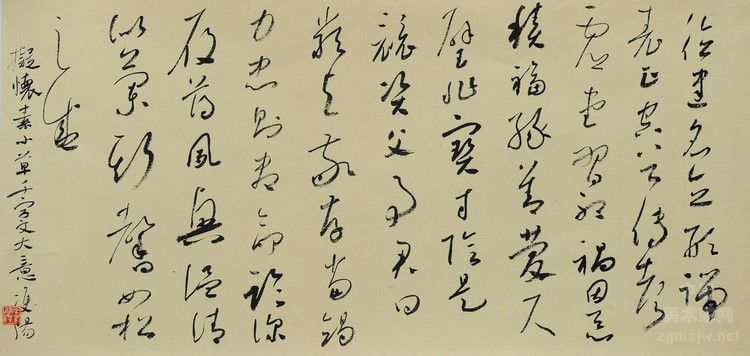 德建名立形端
表正空谷傳聲
虛堂習聽禍因惡
積福緣善慶尺
璧非寶寸陰是
競資父事君曰
嚴與敬孝當竭
力忠則盡命臨深
履薄夙興溫凊
似蘭斯馨如松
之盛
擬懷素小草千字文大意
zgmsjw.net